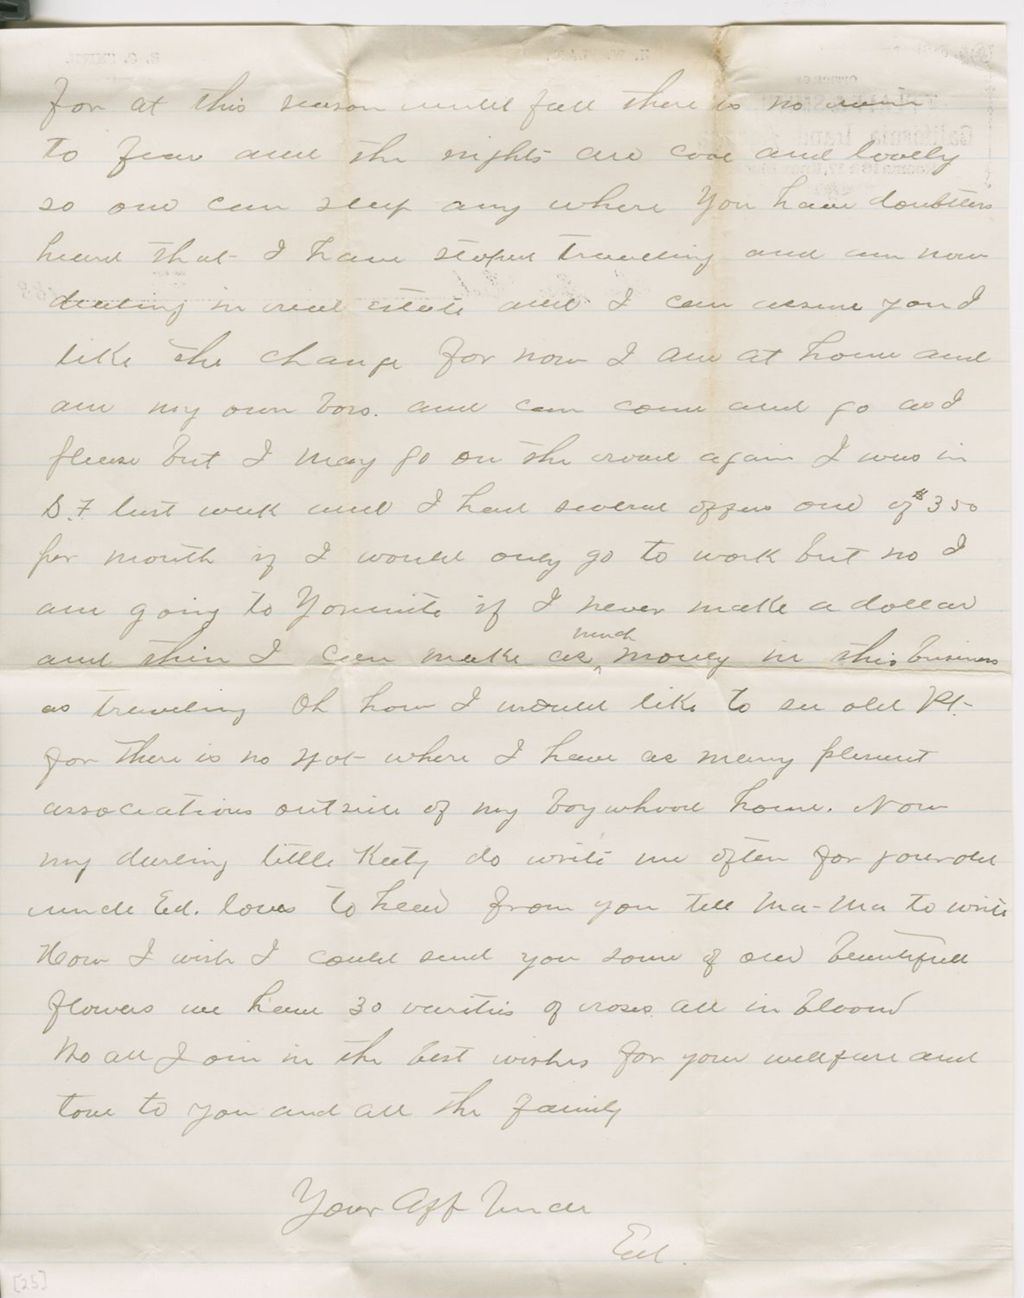 for at this season until fall there is no rain
to fear and the nights are cool and lovely
so one can sleep any where You have doubtless
heard that I have stoped traveling and am now
dealing in real estate and I can assure you I
like the change for now I am at home and
am my own boss. and can come and go as I
please but I may go on the road again I was in
S.F last week and I had several offers one of $350
per month if I would only go to work but no I
am going to Yosmite if I never make a dollar
and then I can make as much money in this business
as traveling Oh how I would like to see old Pt.
for there is no spot where I have as many plesent
associations outside of my boy whood home. Now
my darling little Keety do write me often for your old
uncle Ed. loves to hear from you tell Ma-Ma to write
How I wish I could send you some of our beautifull
flowers we have 30 varities of roses all in bloom
We all Join in the best wishes for your wellfare and
love to you and all the family
Your Aff Uncle
Ed.
[25]